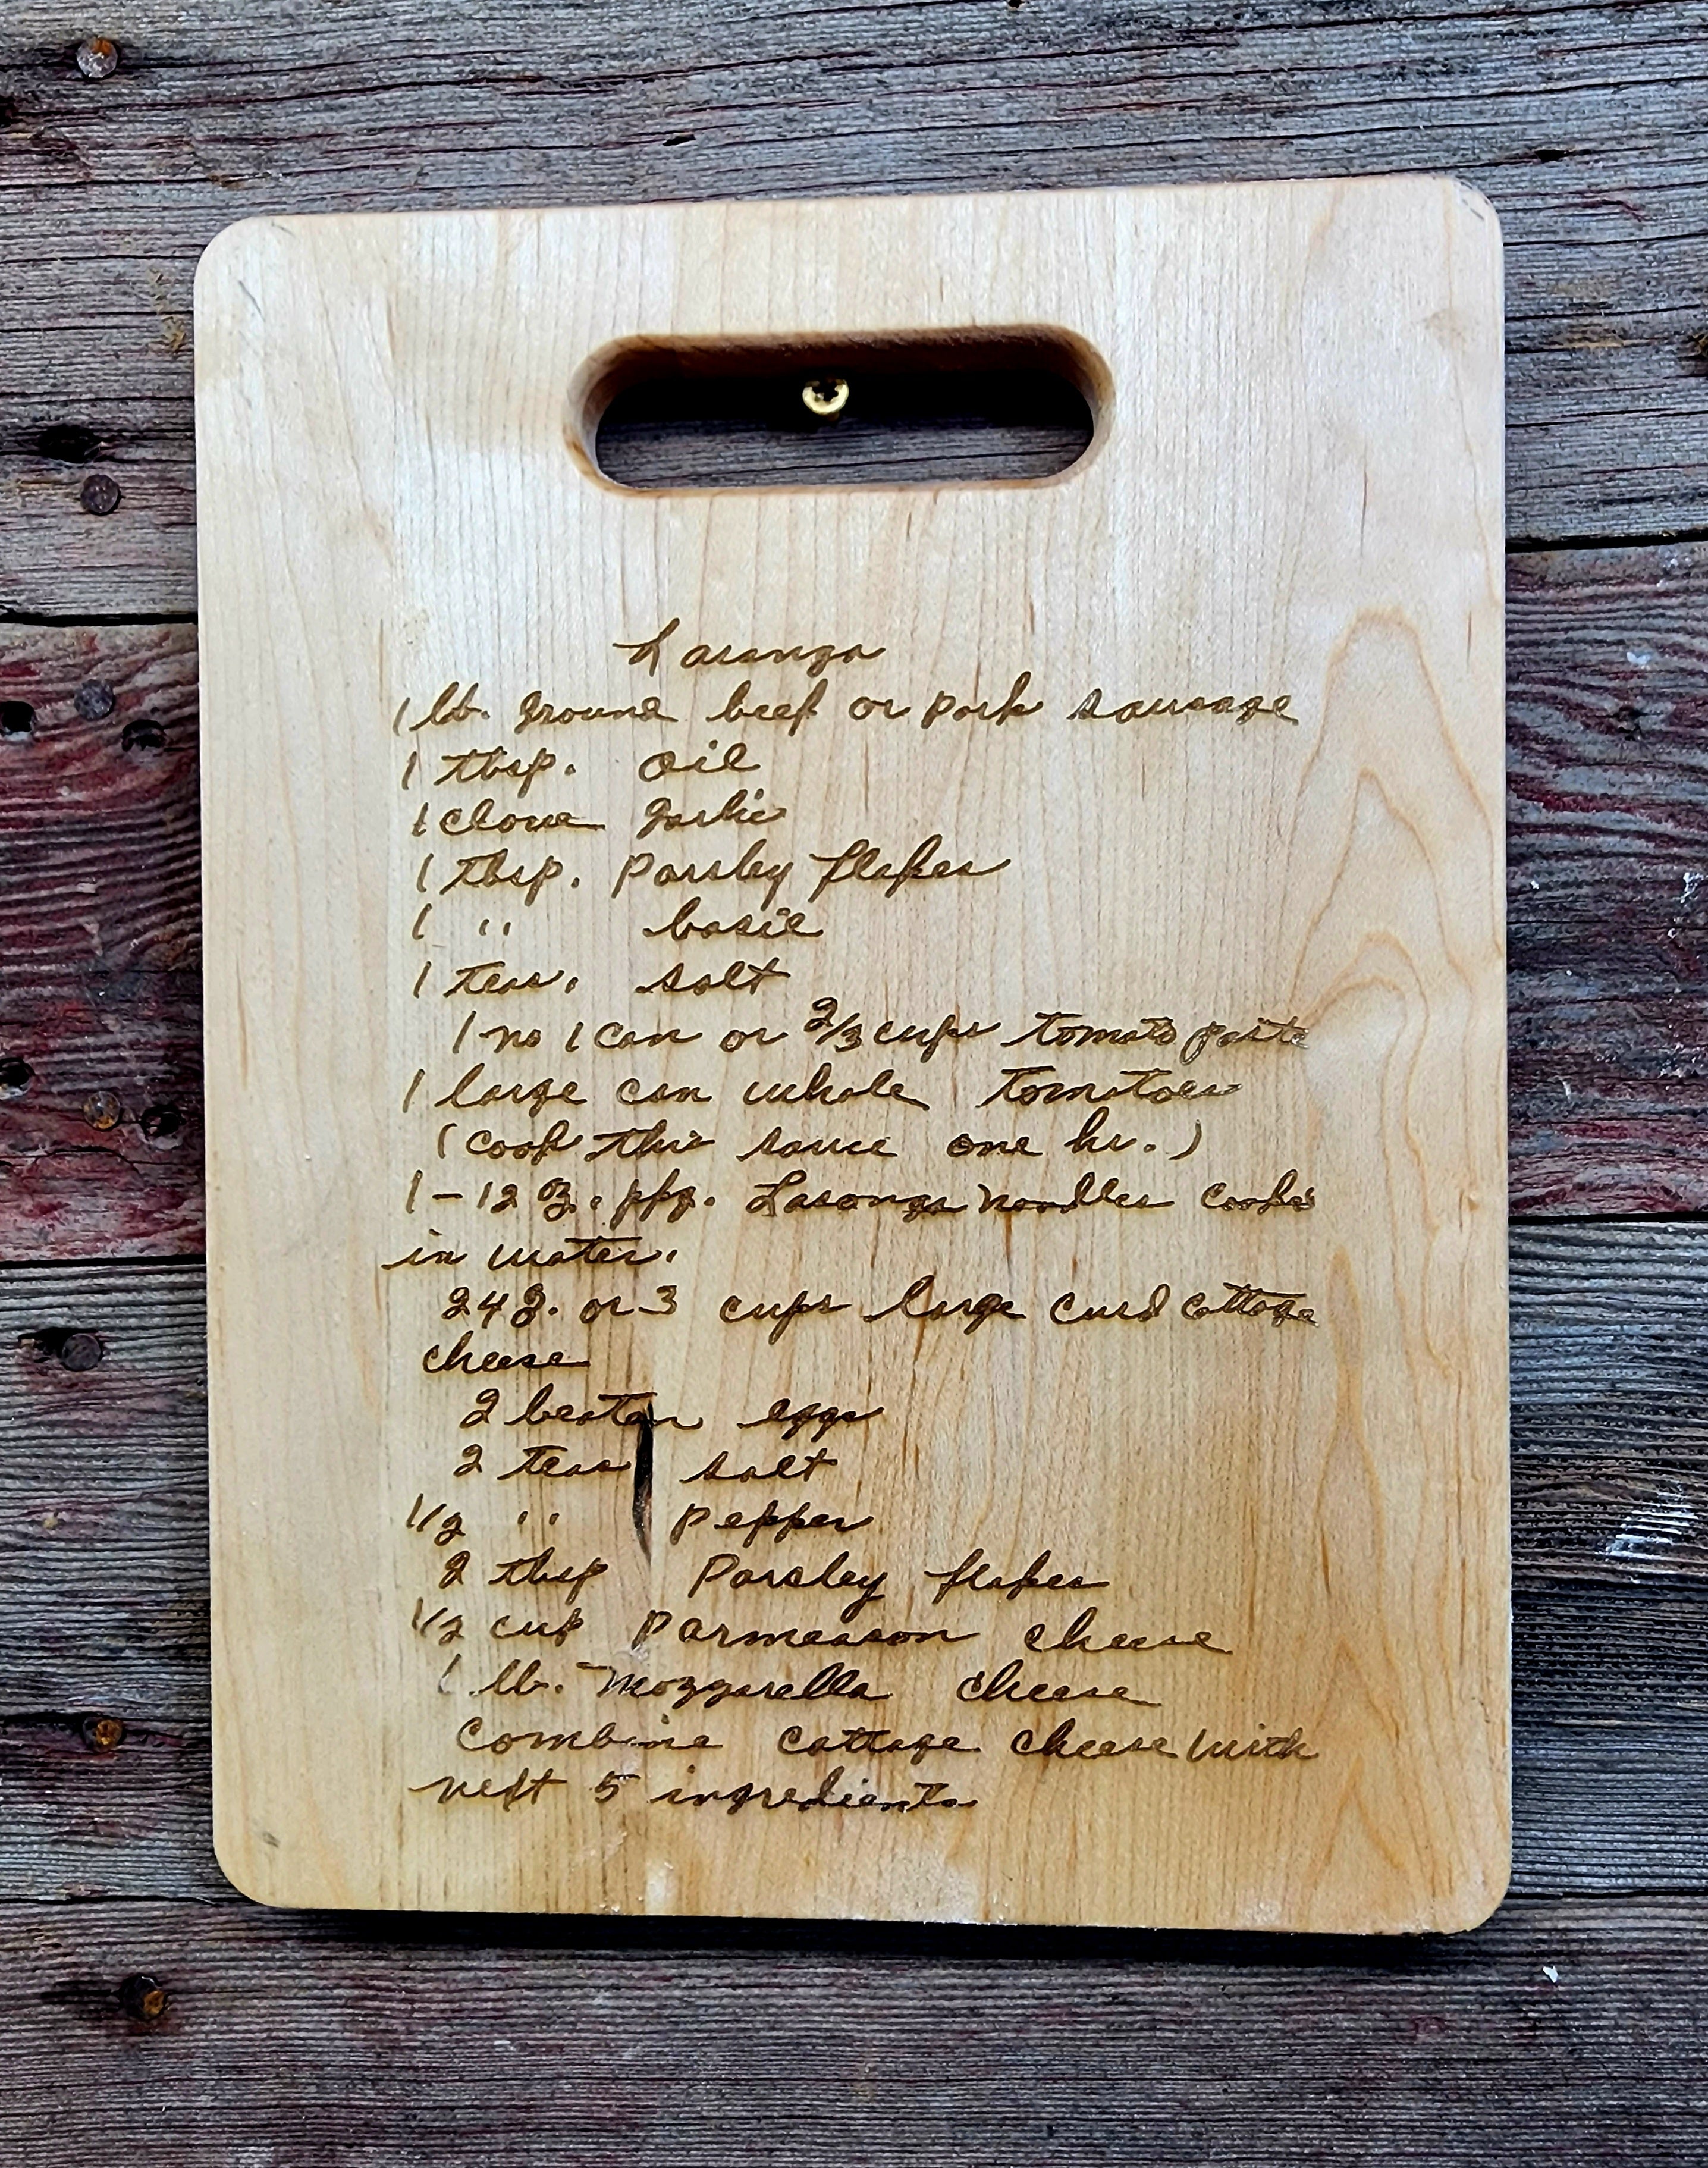 Lasanga
1 lb. ground beef or pork sausage
1 tbsp. oil
1 clove garlic
1 tbsp. Parsley flakes
1 " basil
1 teas. salt
1 no 1 can or 2/3 cups tomato paste
1 large can whole tomatoes
(cook this sauce one hr.)
1-12 oz. pkg. Lasanga noodles cooked
in water.
24 oz. or 3 cups large curd cottage
cheese
2 beaten eggs
2 teas salt
1/2 " pepper
2 tbsp Parsley flakes
1/2 cup Parmeason cheese
1 lb. Mozzarella cheese
Combine cottage cheese with
next 5 ingredients